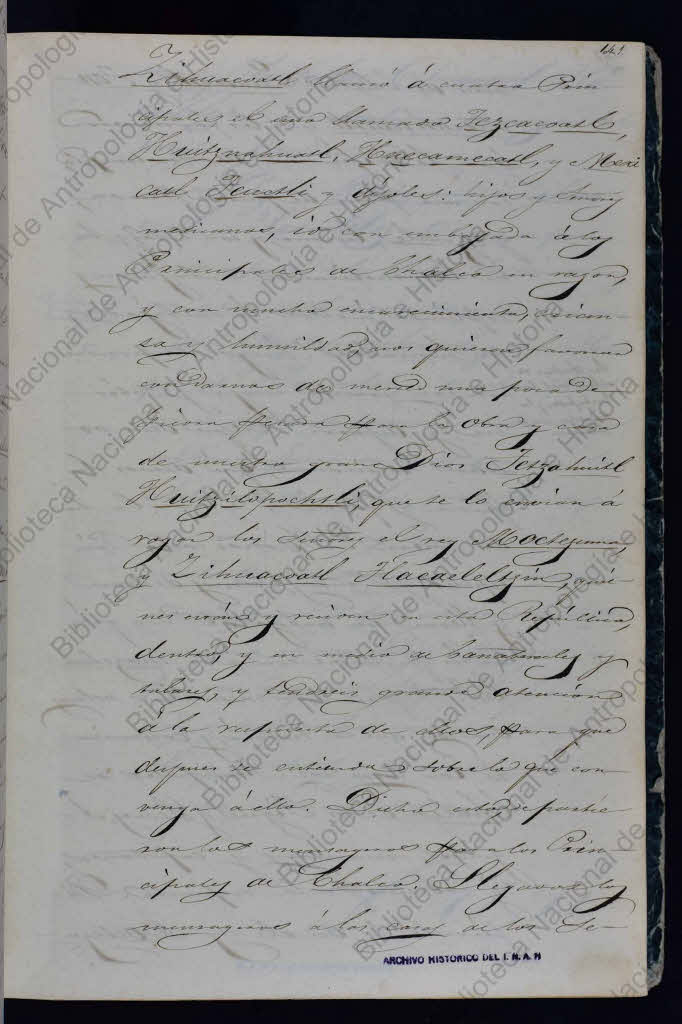 141.
Zihuacoatl llamó á cuatro Prin-
cipales el uno llamado Tezcacoatl,
Huitznahuatl, Huecamecatl, y Mexi
catl Teuctli y dijoles: hijos y Sres
mexicanos, id con embajada á los
Principales de Chalco en razon,
y con mucho encarecimiento,
y humildad, nos quieran favorecer
con darnos de merced una poca de
piedra pesada para la obra y casa
de nuestro gran Dios Tetzahuitl
Huitzilopochtli, que se lo envian á
rogar los Señores el rey Moctezuma,
y Zihuacoatl Tlacaeleltzin, quie-
nes y residen en esta República,
dentro, y en medio de Cañaverales y
tulares, y tendreis grande atencion
á la respuesta de ellos, para que
despues se entienda sobre lo que con-
venga á ello. Dicho esto, se partie-
ron los mensageros para los Prin-
cipales de Chalco. Llegados los
mensageros á las casas de los Se-
ARCHIVO HISTORICO DEL I. N. A. H
Biblioteca Nacional de Antropología e Historia